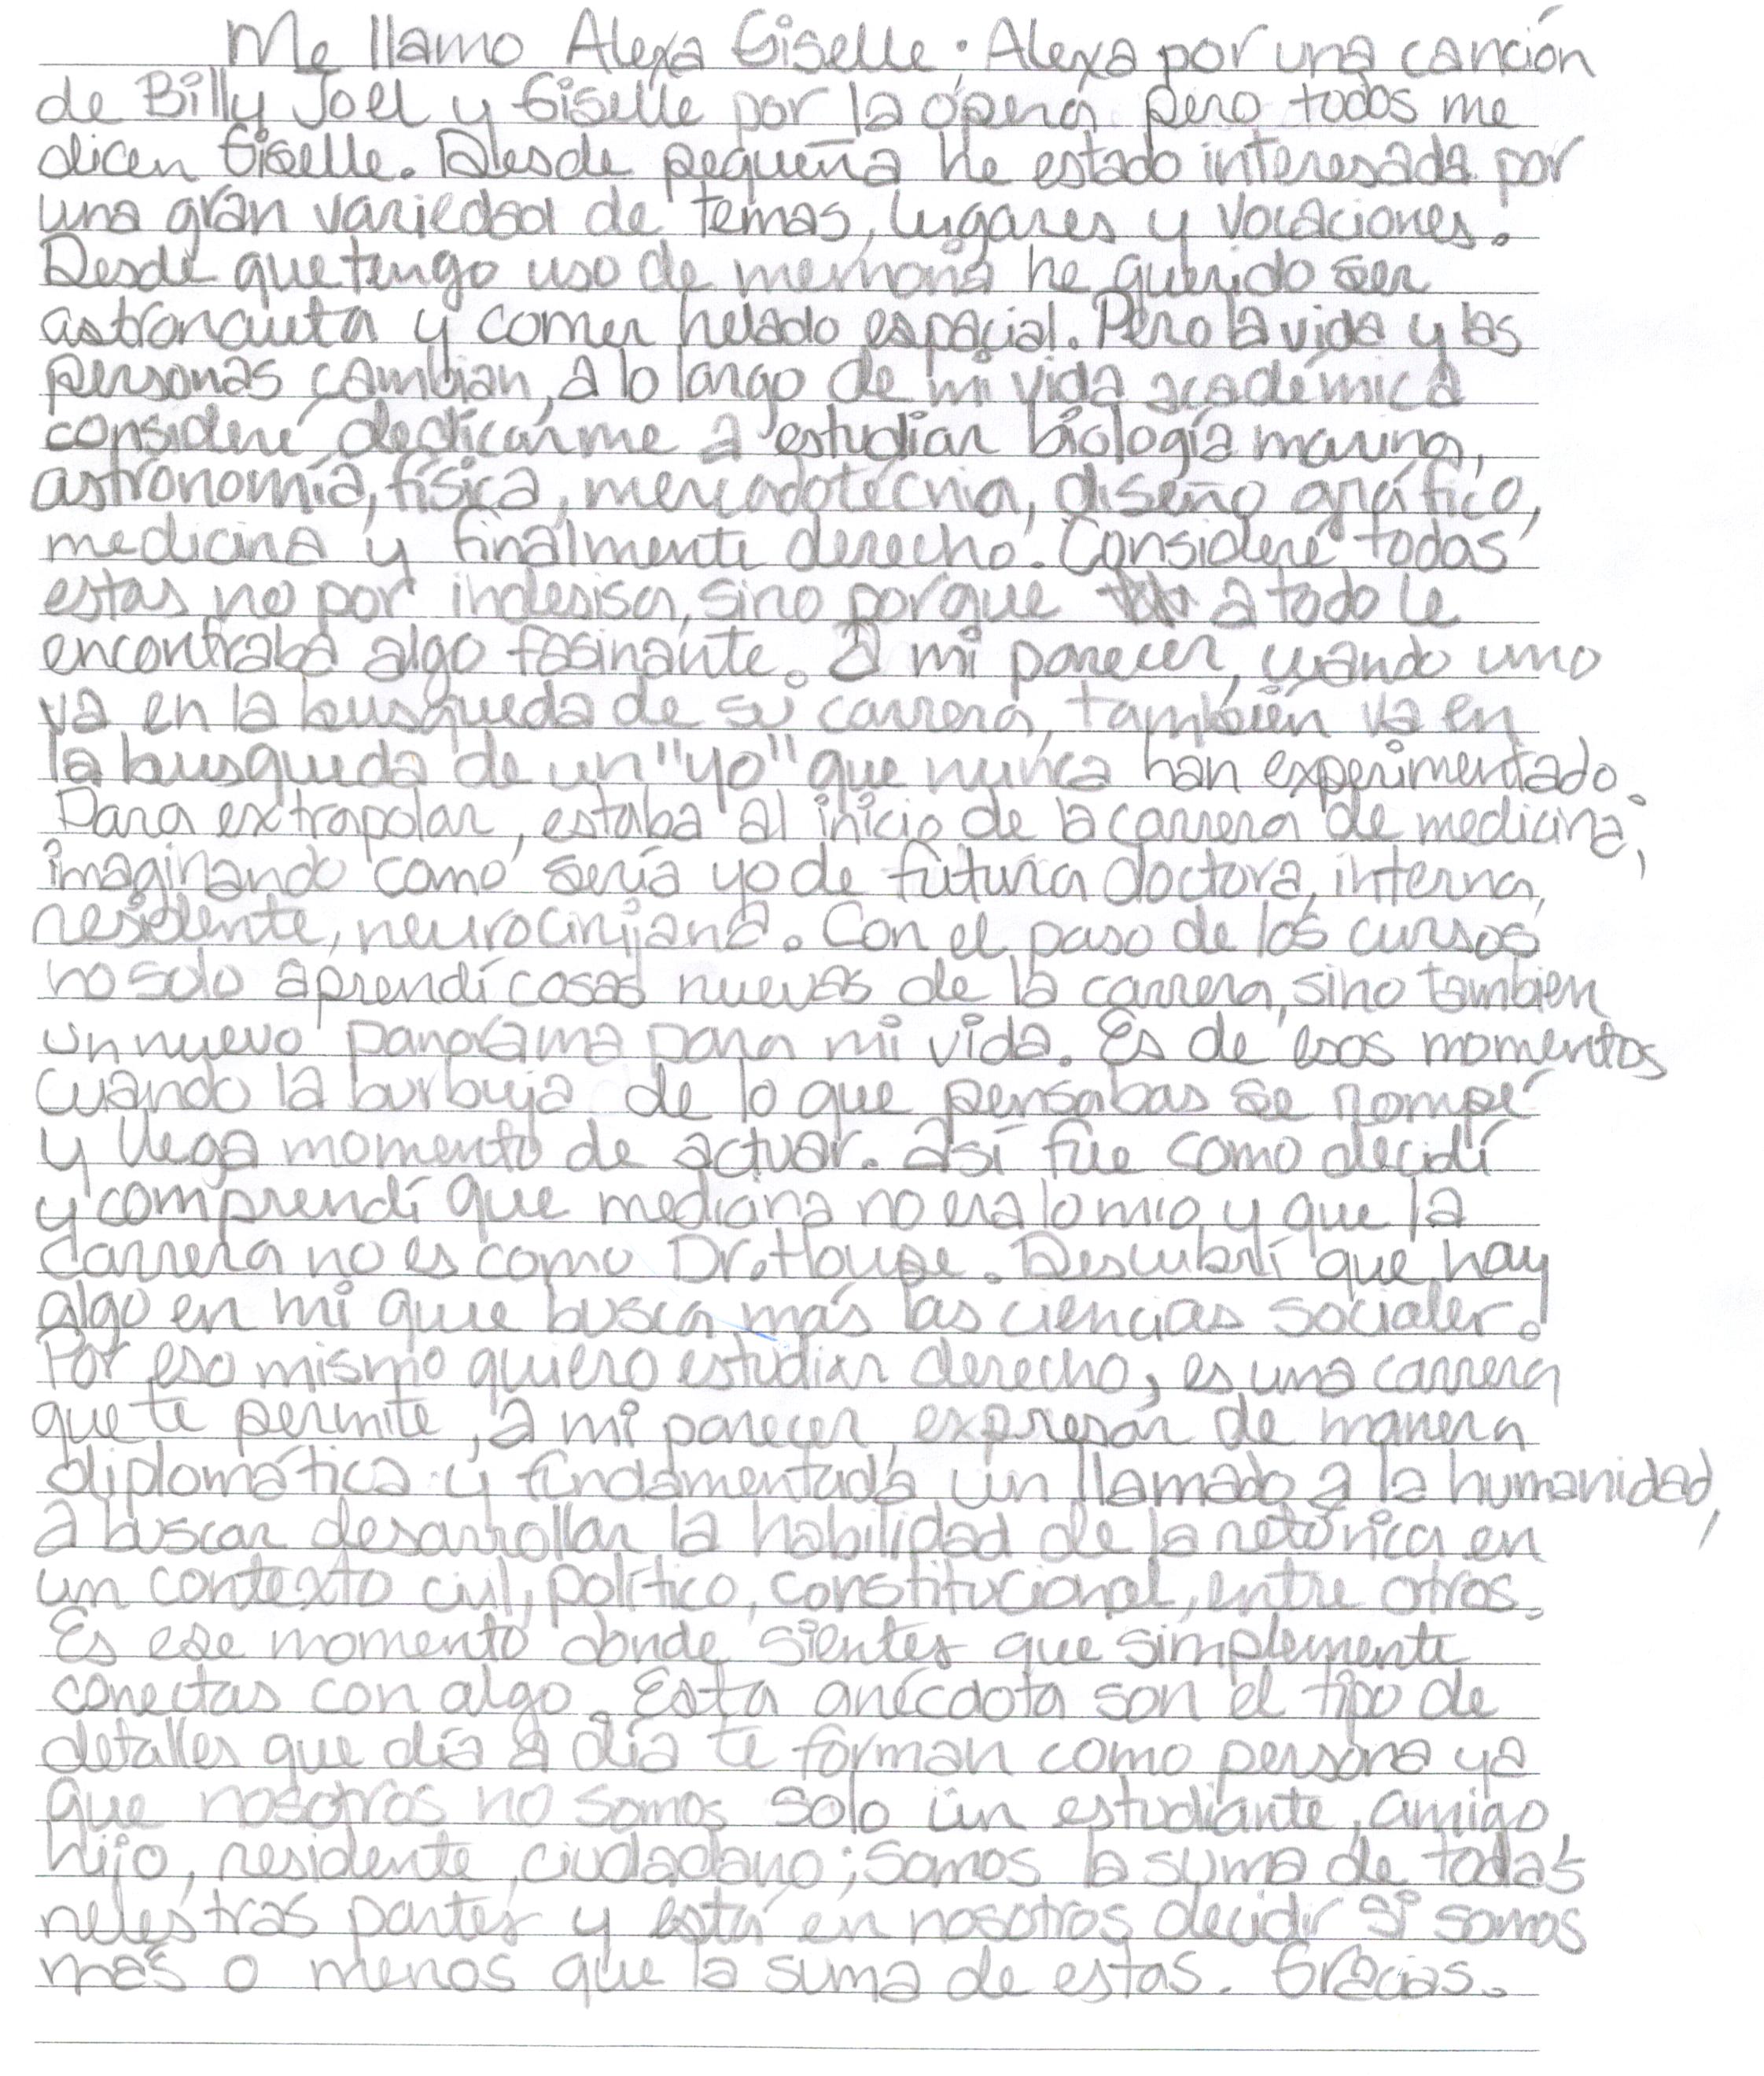 Me llamo Alexa Giselle; Alexa por una canción
de Billy Joel y Giselle por la ópera, pero todos me
dicen Giselle. Desde pequeña he estado interesada por
una gran variedad de temas, lugares y vocaciones.
Desde que tengo uso de memoria he querido ser
astronauta y comer helado espacial. Pero la vida y las
personas cambian, a lo largo de mi vida académica
consideré dedicarme a estudiar biología marina,
astronomía, física, mercadotecnia, diseño gráfico,
medicina y finalmente derecho. Consideré todas
estas no por indesisa, sino porque a todo le
encontraba algo fasinante. A mi parecer, cuando uno
va en la busqueda de su carrera, también va en
la busqueda de un "yo" que nunca han experimentado.
Para extrapolar, estaba al inicio de la carrera de medicina,
imaginando como sería yo de futura doctora, interna,
residente, neurocirujana. Con el paso de los cursos
no solo aprendí cosas nuevas de la carrera, sino tambien
un nuevo panorama para mi vida. Es de esos momentos
cuando la burbuja de lo que pensabas se rompe
y llega momento de actuar. Así fue como decidí
y comprendí que medicina no era lo mio y que la
carrera no es como Dr. House. Descubrí que hay
algo en mi que busca más las ciencias sociales.
Por eso mismo quiero estudiar derecho, es una carrera
que te permite, a mi parecer, expresar de manera
diplomática y fundamentada un llamado a la humanidad,
a buscar desarrollar la habilidad de la retórica en
un contexto civil, político, constitucional, entre otros.
Es ese momento donde sientes que simplemente
conectas con algo. Esta anécdota son el tipo de
detalles que día a día te forman como persona ya
que nosotros no somos solo un estudiante, amigo,
hijo, residente, ciudadano; somos la suma de todas
nuestras partes y está en nosotros decidir si somos
más o menos que la suma de estas. Gracias.